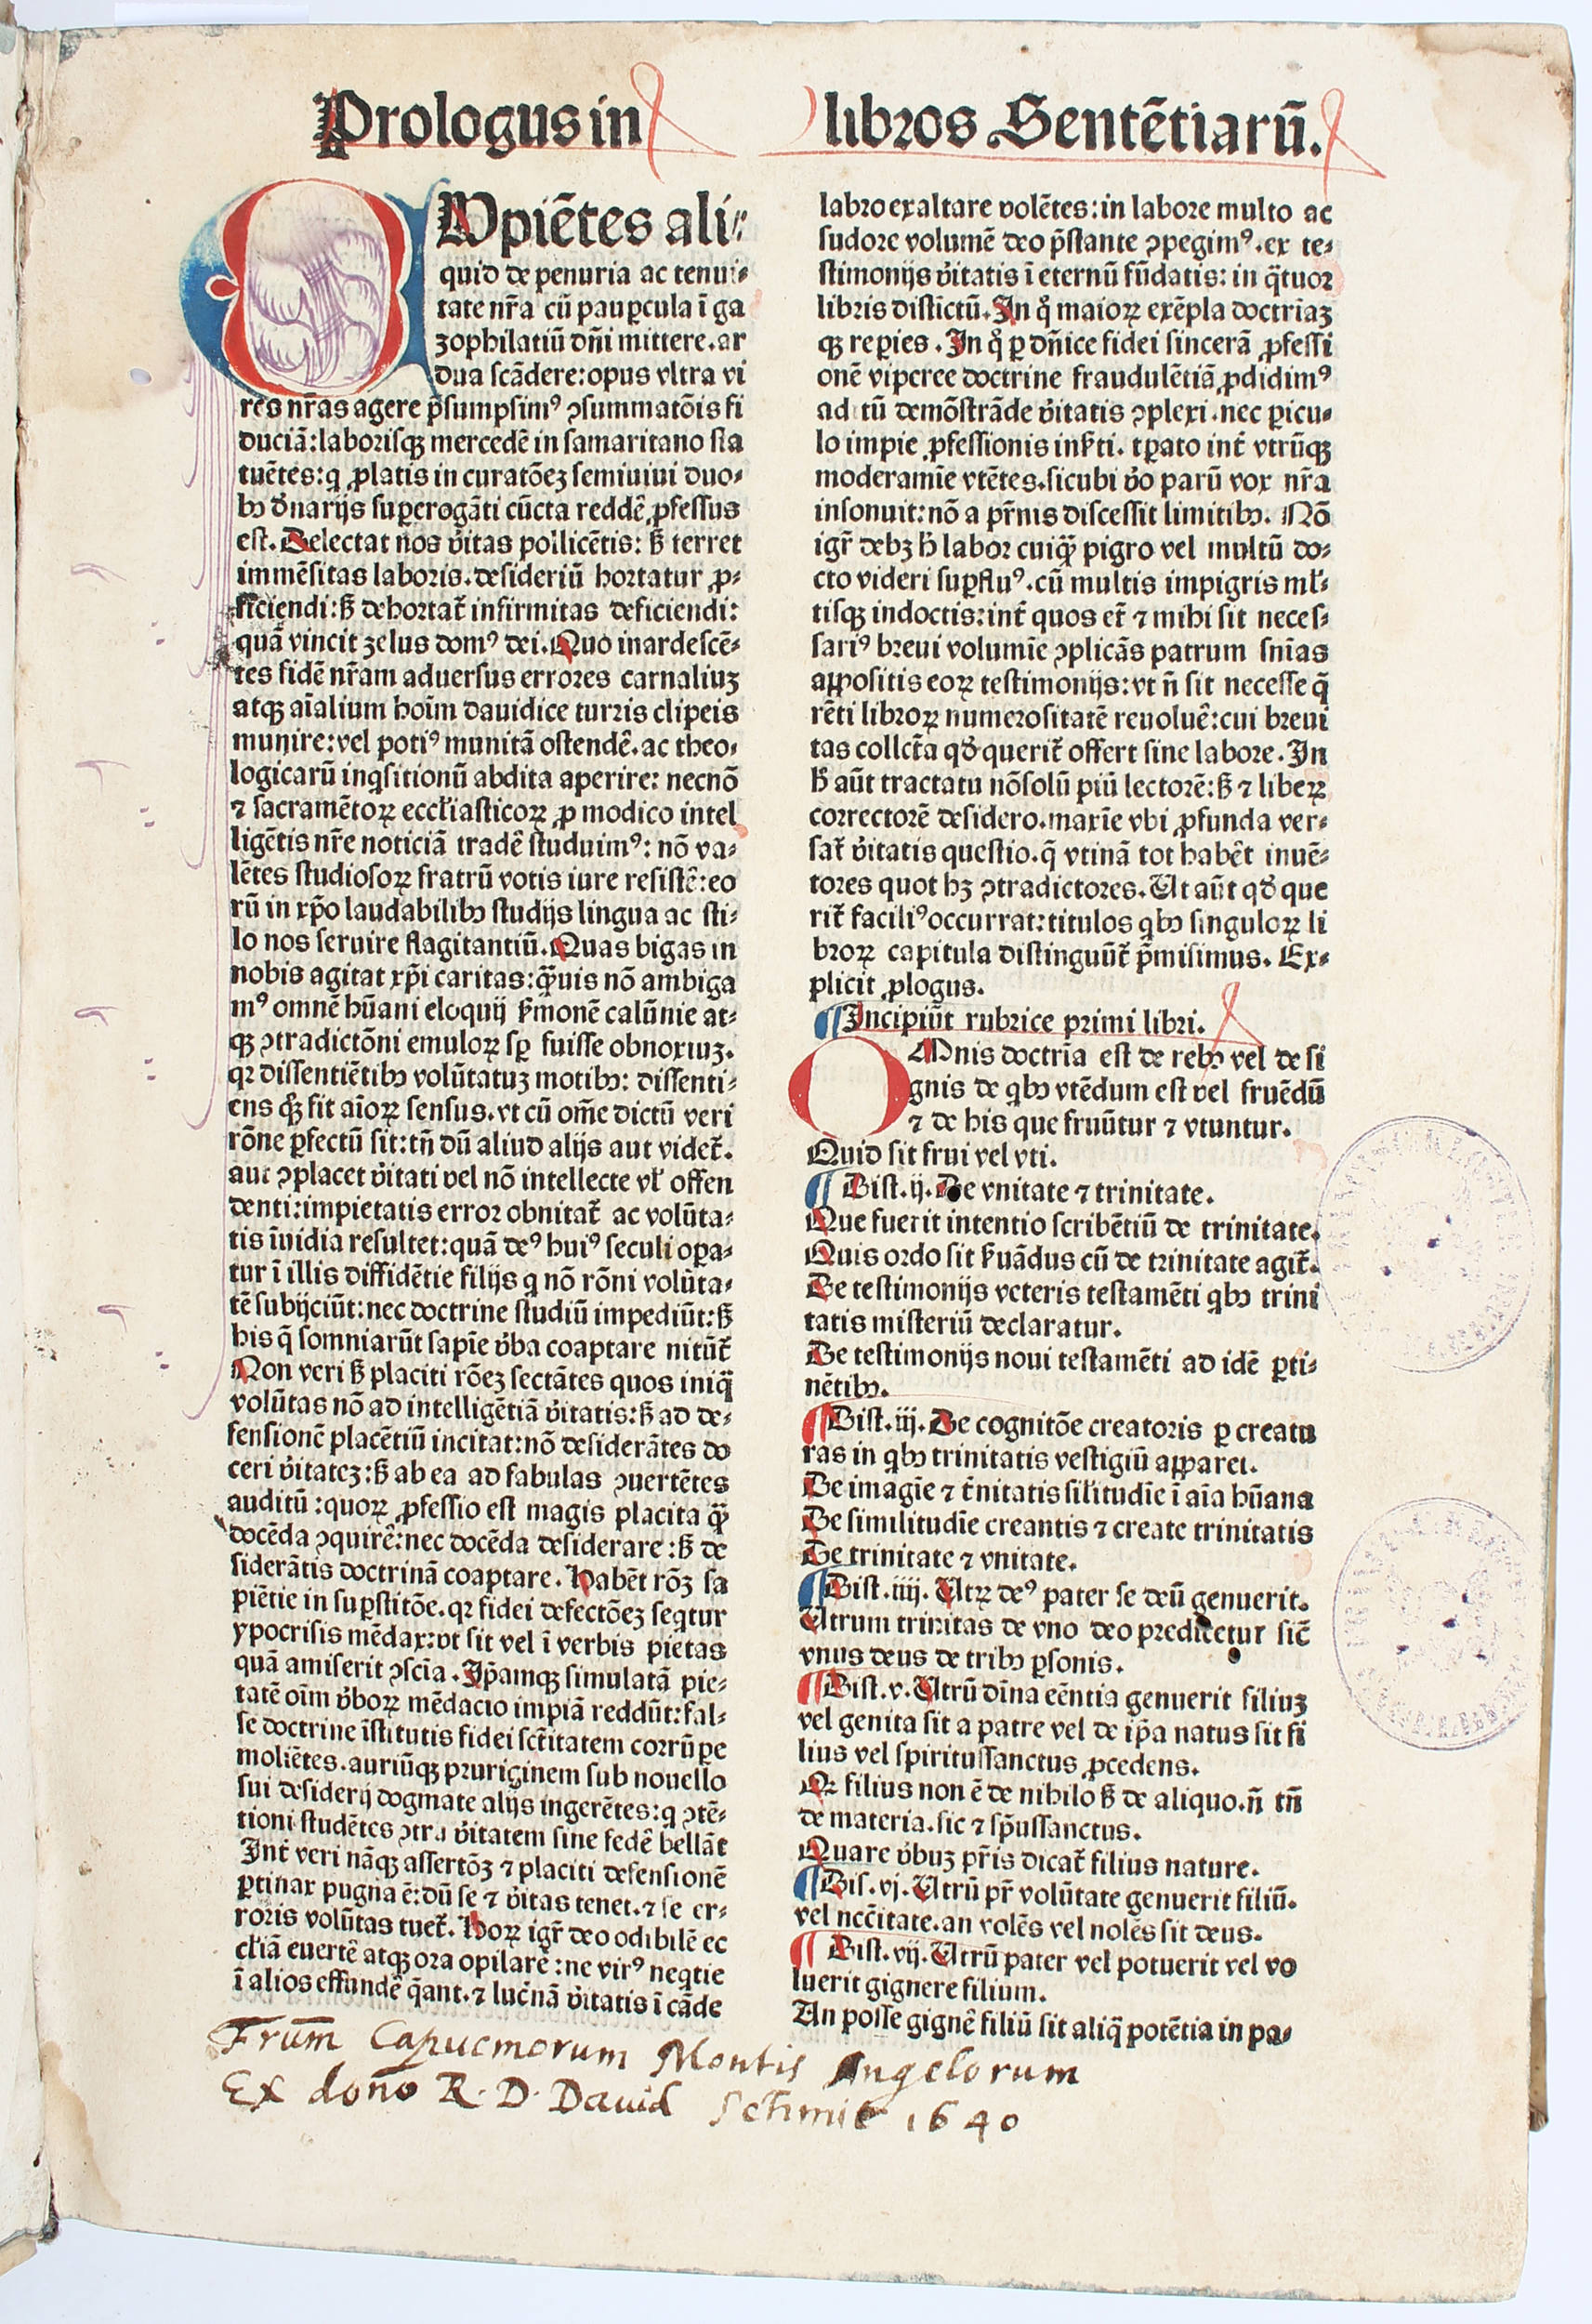 Prologus in libros Sentẽtiarũ.
CUpiẽtes ali⸗
quid de penuria ac tenui⸗
tate nr̃a cũ paup̱cula ĩ ga
zophilatiũ dñi mittere.ar
dua scãdere:opus vltra vi
res nr̃as agere p̃sumpsimꝰ ↄsummatõis fi
duciã:laborisqꝫ mercedẽ in samaritano sta
tuẽtes:q ꝓlatis in curatõeꝫ semiuiui duo⸗
bꝰ d̓narijs sup̱erogãti cũcta reddẽ ꝓfessus
est. Delectat nos v̓itas pollicẽtis: sꝫ terret
immẽsitas laboris.desideriũ hortatur ꝓ⸗
ficiendi:sꝫ dehortat̃ infirmitas deficiendi:
quã vincit zelus domꝰ dei. Quo inardescẽ⸗
tes fidẽ nr̃am aduersus errores carnaliuꝫ
atqꝫ aĩalium hoĩm dauidice turris clipeis
munire:vel potiꝰ munitã ostendẽ.ac theo⸗
logicarũ inq̃sitionũ abdita aperire: necnõ
⁊ sacramẽtoꝝ eccl̃iasticoꝝ ꝓ modico intel
ligẽtis nr̃e noticiã tradẽ studuimꝰ: nõ va⸗
lẽtes studiosoꝝ fratrũ votis iure resistẽ:eo
rũ in xp̃o laudabilibꝰ studijs lingua ac sti⸗
lo nos seruire flagitantiũ. Quas bigas in
nobis agitat xp̃i caritas:q̃uis nõ ambiga
mꝰ omnẽ hũani eloquij s̓monẽ calũnie at⸗
qꝫ ↄtradictõni emuloꝝ sp̱ fuisse obnoxiuꝫ.
qꝛ dissentiẽtibꝰ volũtatuꝫ motibꝰ: dissenti⸗
ens qꝫ fit aĩoꝝ sensus.vt cũ om̃e dictũ veri
rõne p̱fectũ sit:tñ dũ aliud alijs aut videt̃.
aut ↄplacet v̓itati vel nõ intellecte vl̃ offen
denti:impietatis error obnitat̃ ac volũta⸗
tis ĩuidia resultet:quã deꝰ huiꝰ seculi op̱a⸗
tur ĩ illis diffidẽtie filijs q nõ rõni volũta⸗
tẽ subijciũt:nec doctrine studiũ impediũt:sꝫ
his q̃ somniarũt sapĩe v̓ba coaptare nitũt̃
Non veri sꝫ placiti rõeꝫ sectãtes quos iniq̃
volũtas nõ ad intelligẽtiã v̓itatis:sꝫ ad de⸗
fensionẽ placẽtiũ incitat:nõ desiderãtes do
ceri v̓itateꝫ:sꝫ ab ea ad fabulas ↄuertẽtes
auditũ:quoꝝ ꝓfessio est magis placita q̃ꝫ
docẽda ↄquirẽ:nec docẽda desiderare:sꝫ de
siderãtis doctrinã coaptare. Habẽt rõꝫ sa
piẽtie in sup̱stitõe.qꝛ fidei defectõeꝫ seq̃tur
ypocrisis mẽdax:vt sit vel ĩ verbis pietas
quã amiserit ↄscĩa. Ip̃amqꝫ simulatã pie⸗
tatẽ oĩm v̓boꝝ mẽdacio impiã reddũt:fal⸗
se doctrine ĩstitutis fidei sct̃itatem corrũp̱e
moliẽtes.auriũqꝫ pruriginem sub nouello
sui desiderij dogmate alijs ingerẽtes:q ↄtẽ⸗
tioni studẽtes ↄtra v̓itatem sine fedẽ bellãt
Int̓ veri nãqꝫ assertõꝫ ⁊ placiti defensionẽ
p̱tinax pugna ẽ:dũ se ⁊ v̓itas tenet.⁊ se er⸗
roris volũtas tuet̃. Hoꝝ igr̃ deo odibilẽ ec
cl̃iã euertẽ atqꝫ ora opilare:ne virꝰ neq̃tie
ĩ alios effundẽ q̃ant.⁊ luc̓nã v̓itatis ĩ cãde
labro exaltare volẽtes:in labore multo ac
sudore volumẽ deo p̃stante ↄpegimꝰ.ex te⸗
stimonijs v̓itatis ĩ eternũ fũdatis: in q̃tuor
libris distĩctũ. In q̊ maioꝝ exẽpla doctriaꝫ
qꝫ rep̱ies. In q̊ p̱ dñice fidei sincerã ꝓfessi
onẽ viperee doctrine fraudulẽtiã ꝓdidimꝰ
ad tũ demõstrãde v̓itatis ↄplexi.nec p̱icu⸗
lo impie ꝓfessionis ins̓ti.tp̱ato int̓ vtrũqꝫ
moderamĩe vtẽtes.sicubi v̓o parũ vox nr̃a
insonuit:nõ a pr̃nis discessit limitibꝰ. Nõ
igr̃ debꝫ h̓ labor cuiq̃ꝫ pigro vel multũ do⸗
cto videri sup̱fluꝰ.cũ multis impigris ml̓⸗
tisqꝫ indoctis:int̓ quos et̃ ⁊ mihi sit neces⸗
sariꝰ breui volumĩe ↄplicãs patrum sñias
appositis eoꝝ testimonijs:vt ñ sit necesse q̃
rẽti libroꝝ numerositatẽ reuoluẽ:cui breui
tas collct̃a qd̓ querit̃ offert sine labore. In
h̓ aũt tractatu nõsolũ piũ lectorẽ:sꝫ ⁊ libeꝝ
correctorẽ desidero.maxĩe vbi ꝓfunda ver⸗
sat̃ v̓itatis questio.q̃ vtinã tot habẽt inuẽ⸗
tores quot hꝫ ↄtradictores. Ut aũt qd̓ que
rit̃ faciliꝰ occurrat:titulos q̃bꝰ singuloꝝ li
broꝝ capitula distinguũt̃ p̃misimus. Ex⸗
plicit ꝓlogus.
¶ Incipiũt rubrice primi libri.
OMnis doctrĩa est de rebꝰ vel de si
gnis de q̃bꝰ vtẽdum est vel fruẽdũ
⁊ de his que fruũtur ⁊ vtuntur.
Quid sit frui vel vti.
¶ Dist.ij. De vnitate ⁊ trinitate.
Que fuerit intentio scribẽtiũ de trinitate.
Quis ordo sit s̓uãdus cũ de trinitate agit̃.
De testimonijs veteris testamẽti q̃bꝰ trini
tatis misteriũ declaratur.
De testimonijs noui testamẽti ad idẽ p̱ti⸗
nẽtibꝰ.
¶ Dist.iij. De cognitõe creatoris p̱ creatu
ras in q̃bꝰ trinitatis vestigiũ apparet.
De imagĩe ⁊ t̓nitatis sil̓itudĩe ĩ aĩa hũana
De similitudĩe creantis ⁊ create trinitatis
De trinitate ⁊ vnitate.
¶ Dist.iiij. Utꝝ deꝰ pater se deũ genuerit.
Utrum trinitas de vno deo predicetur sic̃
vnus deus de tribꝰ p̱sonis.
¶ Dist.v. Utrũ diĩna eẽntia genuerit filiuꝫ
vel genita sit a patre vel de ip̃a natus sit fi
lius vel spiritussanctus ꝓcedens.
Qꝛ filius non ẽ de nihilo sꝫ de aliquo.ñ tñ
de materia.sic ⁊ sp̃ussanctus.
Quare v̓buꝫ pr̃is dicat̃ filius nature.
¶ Dis.vj. Utrũ pr̃ volũtate genuerit filiũ.
vel necc̃itate.an volẽs vel nolẽs sit deus.
¶ Dist.vij. Utrũ pater vel potuerit vel vo
luerit gignere filium.
An posse gignẽ filiũ sit aliq̃ potẽtia in pa⸗
Frũm Capucinorum Montis Angelorum
Ex dono R. D. Dauid Schmit 1640